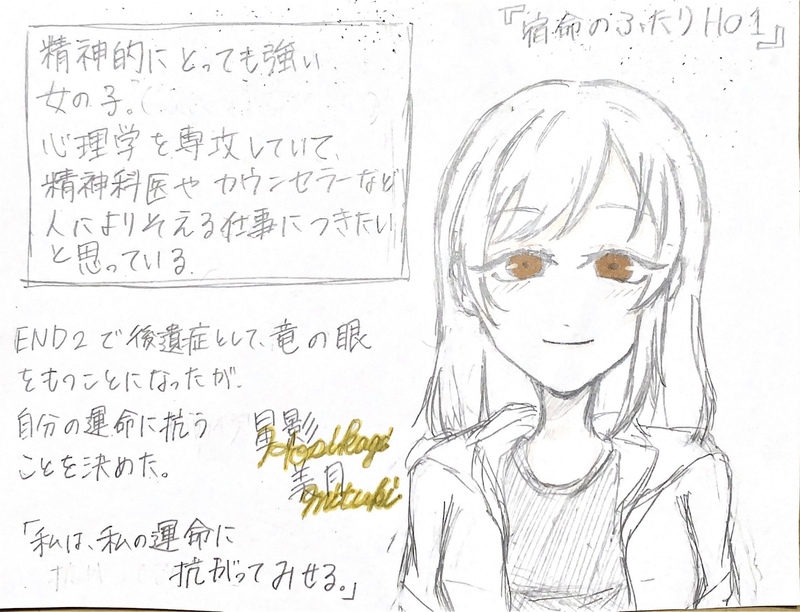 『宿命のふたりHO1』
精神的にとっても強い
女の子。
心理学を専攻していて、
精神科医やカウンセラーなど
人によりそえる仕事につきたい
と思っている。
END2で後遺症として、竜の眼
をもつことになったが、
自分の運命に抗う
ことを決めた。
星影
Hoshikage
美月
mituki
「私は、私の運命に
抗がってみせる。」